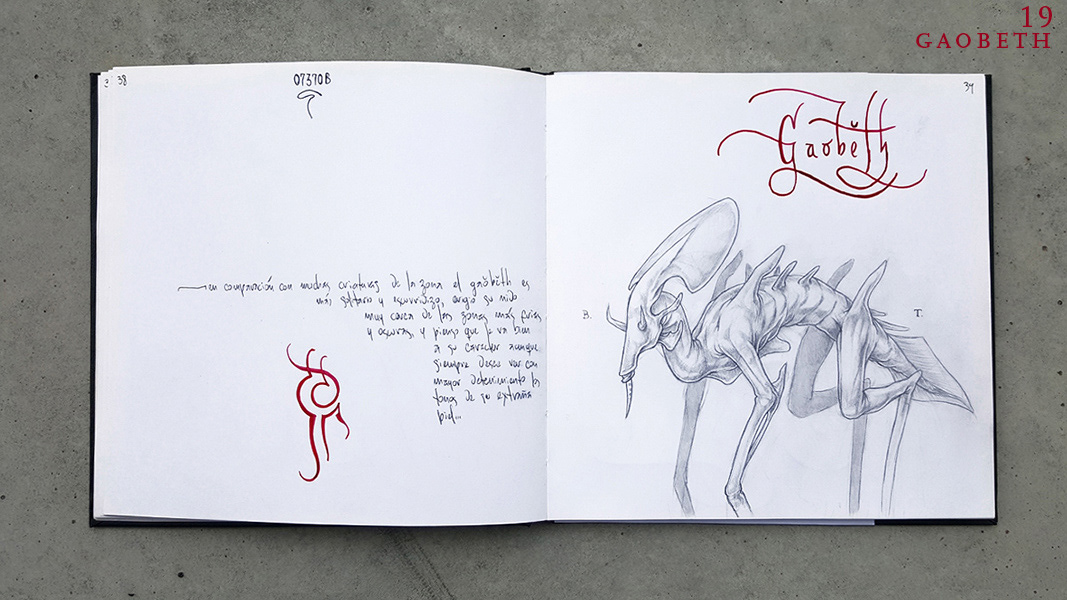 19
GAOBETH
38
07370B
en comparación con muchas criaturas de la zona el gaŏbĕth es
más solitario y escurridizo, acogió su nido
muy cerca de las zonas más frías
y oscuras, y pienso que le va bien
a su carácter aunque
siempre deseo ver con
mayor detenimiento los
tonos de su extraña
piel...
39
Gaŏbeth
B.
T.